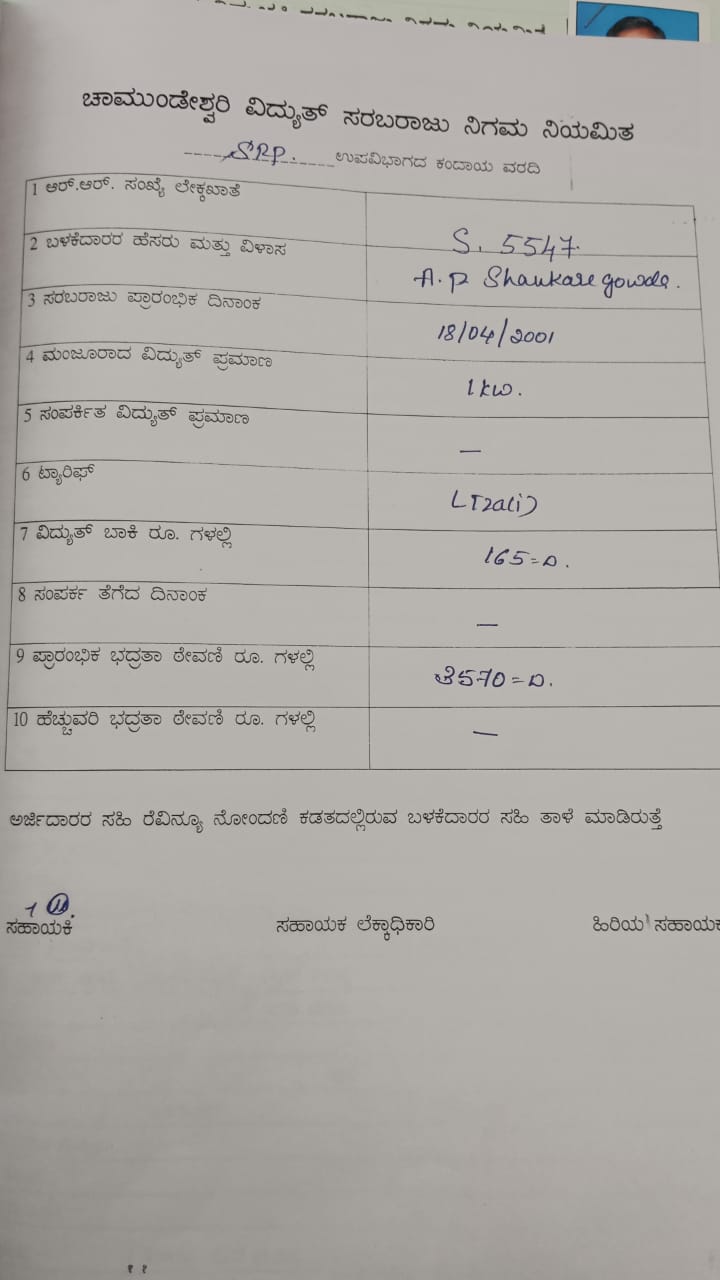 ಚಾಮುಂಡೇಶ್ವರಿ ವಿದ್ಯುತ್ ಸರಬರಾಜು ನಿಗಮ ನಿಯಮಿತ
SRP. ಉಪವಿಭಾಗದ ಕಂದಾಯ ವರದಿ
1 ಆರ್.ಆರ್. ಸಂಖ್ಯೆ ಲೇಕ್ಕಖಾತೆ S. 5547.
2 ಬಳಕೆದಾರರ ಹೆಸರು ಮತ್ತು ವಿಳಾಸ A. P Shankare gowda.
3 ಸರಬರಾಜು ಪ್ರಾರಂಭಿಕ ದಿನಾಂಕ 18/04/2001
4 ಮಂಜೂರಾದ ವಿದ್ಯುತ್ ಪ್ರಮಾಣ 1 kw.
5 ಸಂಪರ್ಕಿತ ವಿದ್ಯುತ್ ಪ್ರಮಾಣ —
6 ಟ್ಯಾರಿಫ್ LT2a(i)
7 ವಿದ್ಯುತ್ ಬಾಕಿ ರೂ. ಗಳಲ್ಲಿ 165=00.
8 ಸಂಪರ್ಕ ತೆಗೆದ ದಿನಾಂಕ —
9 ಪ್ರಾರಂಭಿಕ ಭದ್ರತಾ ಠೇವಣಿ ರೂ. ಗಳಲ್ಲಿ 3570=00.
10 ಹೆಚ್ಚುವರಿ ಭದ್ರತಾ ಠೇವಣಿ ರೂ. ಗಳಲ್ಲಿ —
ಅರ್ಜಿದಾರರ ಸಹಿ ರೆವಿನ್ಯೂ ನೋಂದಣಿ ಕಡತದಲ್ಲಿರುವ ಬಳಕೆದಾರರ ಸಹಿ ತಾಳೆ ಮಾಡಿರುತ್ತೆ
ಸಹಾಯಕಿ ಸಹಾಯಕ ಲೆಕ್ಕಾಧಿಕಾರಿ ಹಿರಿಯ ಸಹಾಯಕ